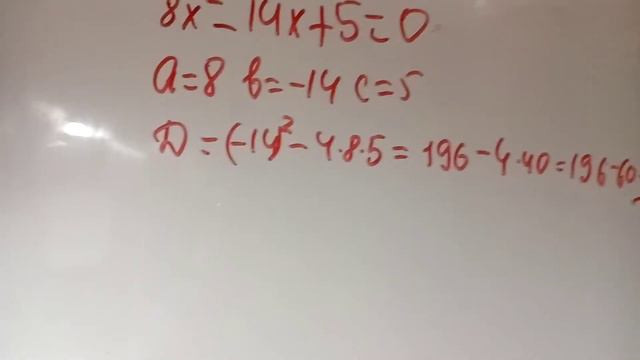 8x² - 14x + 5 = 0
a = 8 b = -14 c = 5
D = (-14)² - 4·8·5 = 196 - 4·40 = 196-60